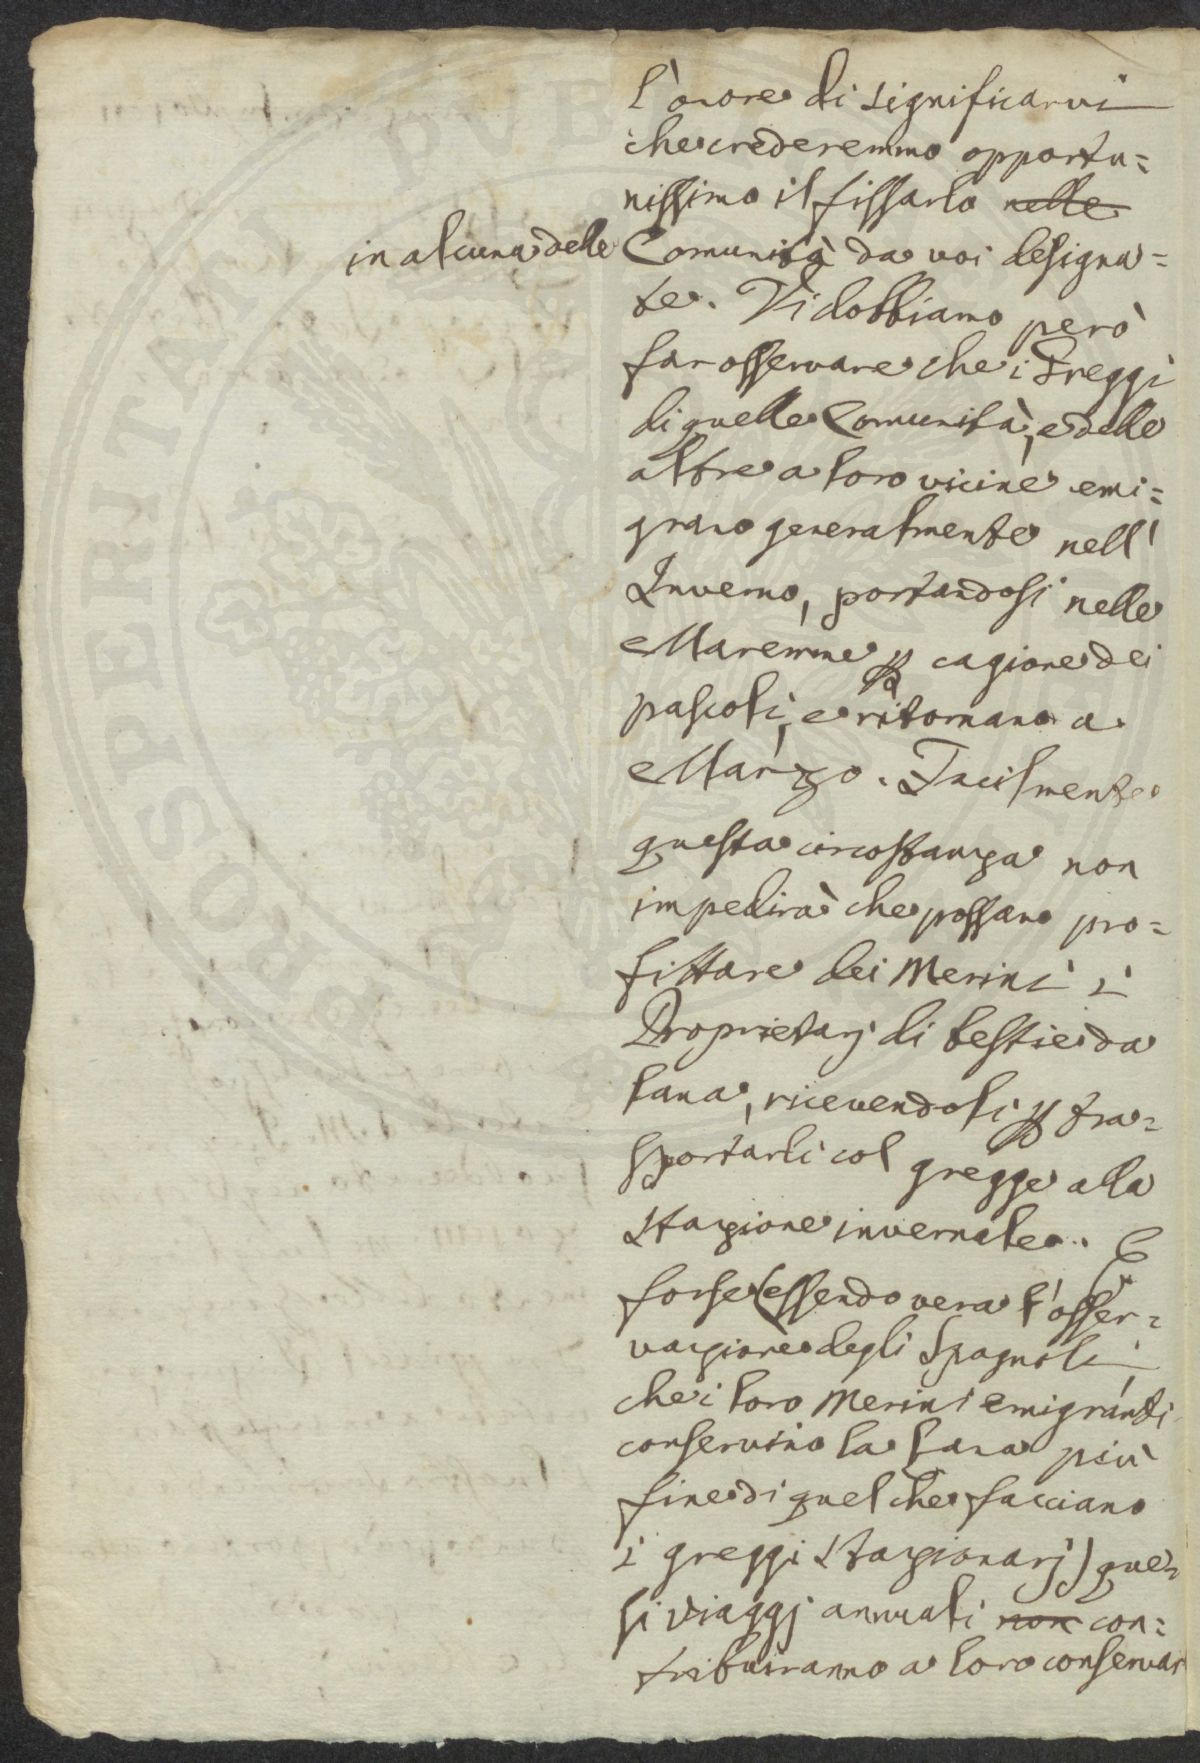 l'onore di significarvi
che crederemmo opportu=
nissimo il fissarlo nelle
in alcuna delle Comunità da voi designa=
te. Vi dobbiamo però
far osservare che i Greggi
di quelle Comunità, e delle
altre a loro vicine emi=
grano generalmente nell'
Inverno, portandosi nelle
Maremme p cagione dei
pascoli, e ritornano a
Marzo. Facilmente
questa circostanza non
impedirà che possano pro=
fittare dei Merini i
Proprietarj di bestie da
lana, ricevendoli p tra=
sportarli col gregge alla
Stazione invernale. E
forse (essendo vera l'osser=
vazione degli Spagnoli,
che i loro Merini emigranti
conservino la lana più
fine di quel che facciano
i greggi Stazionarj) que=
sti viaggj annuali non con=
tribuiranno a loro conservar
PROSPERITATI PVB